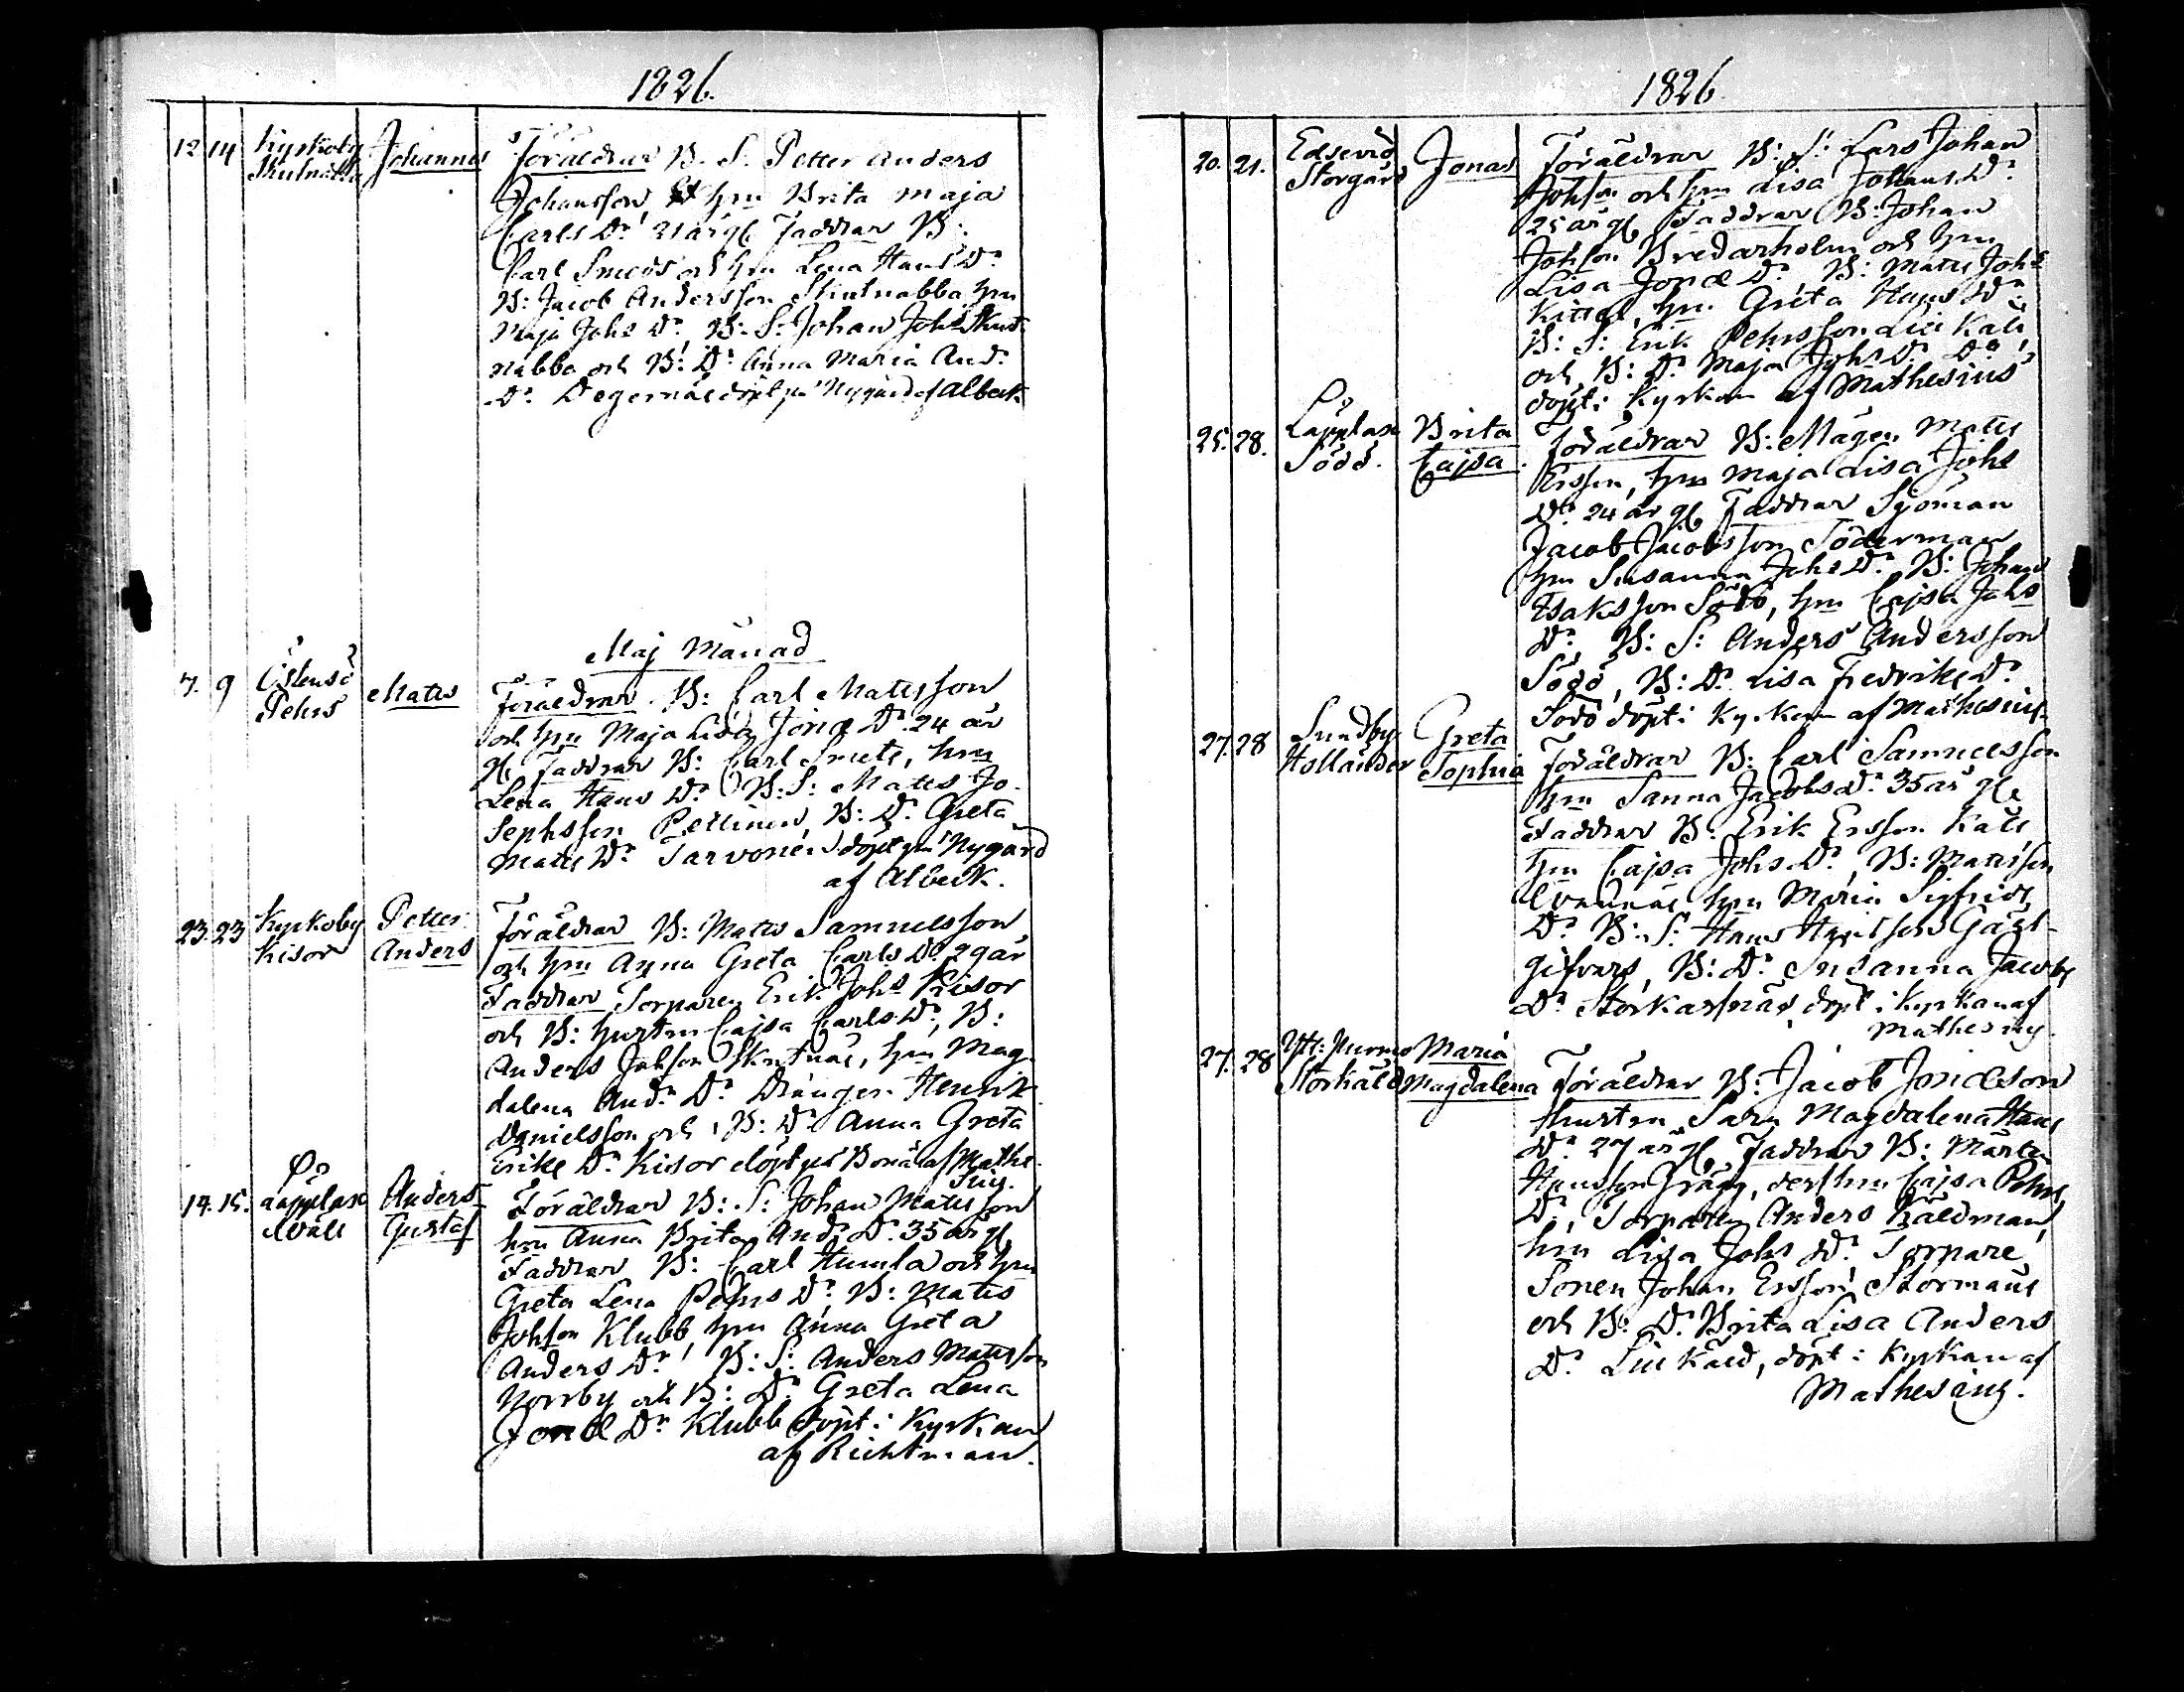 1826.
12 14 Kyrkoby Johannes Föräldrar B. S. Petter Anders
Skutnabba Johansson hru Brita Maja
Carls Dr 21 år gl Faddrar B:
Carl Smeds och hru Lena Hans Dr
B: Jacob Andersson Skutnabba hru
Maja Johs Dr, B. S. Johan Johs Skut
nabba och B: Dr Anna Maria And.
Dr Degernäs döpt på Nygård af Albeck
Maj Månad
7. 9 Östensö Matts Föräldrar B: Carl Mattsson
Pehrs och hru Maja Lisa Jonæ Dr 24 år
gl. Faddrar B: Carl Smeds, hru
Lena Hans Dr B: S: Matts Jo-
sephsson Pellinen, B: Dr Greta
Matts Dr Tarvonen döpt på Nygård
af Albeck.
23. 23 Kyrkoby Petter Föräldrar B: Matts Samuelsson
Kisor Anders och hru Anna Greta Carls Dr 29 år
Faddrar Torparen Erik Johs Kisor
och B: hustru Cajsa Carls Dr, B:
Anders Johsson Skutnäs, hru Mag
dalena And. Dr Drängen Henrik
Danielsson och B: Dr Anna Greta
Eriks Dr Kisor döpt på Bonäs af Mathe
sius.
14. 15. På Lappfax Anders Föräldrar B: S: Johan Mattsson
Gustaf hru Anna Brita And. Dr 35 år gl.
Faddrar B: Carl Humla och hru
Greta Lena Pehrs Dr, B: Matts
Johsson Klubb, hru Anna Greta
Anders Dr B: S: Anders Mattsson
Norrby och B: Dr Greta Lena
Jonæ Dr Klubb döpt i Kyrkan
af Richtman.
1826.
20. 21. Edsevö Jonas Föräldrar B: S: Lars Johan
Storgård Johsson och hru Lisa Johans Dr
25 år gl. Faddrar B: Johan
Johsson Bredarholm och hru
Lisa Jonæ Dr B: Matts Johs
hru Greta Hans Dr
B: S: Erik Pehrsson
och B: Dr Maja Johs Dr Do
döpt i Kyrkan af Mathesius
25. 28. På Lappfax Brita Föräldrar B: Mågen Matts
Södö. Cajsa Ersson, hru Maja Lisa Johs
Dr 24 år gl. Faddrar Sjöman
Jacob Jacobsson Söderman
hru Susanna Johs Dr B: Johan
Isaksson Södö, hru Cajsa Johs
Dr, B: S: Anders Andersson
Södö, B: Dr Lisa Fredriks Dr
Södö döpt i Kyrkan af Mathesius
27. 28 Sundby Greta Föräldrar B: Carl Samuelsson
Holländer Sophia hru Sanna Jacobs Dr 35 år gl.
Faddrar B: Erik Ersson Kåll
hru Cajsa Johs Dr, B: Mattsson
hru Maria Sigfrids
Dr B: S: Hans Gäst-
gifvars, B: Dr Susanna Jacobs
Dr Storkarsnäs, döpt i Kyrkan af
Mathesius.
27. 28 Ytt: Purmo Maria Föräldrar B: Jacob Jonæson
Storkåld Magdalena hustru Sara Magdalena Hans
Dr 27 år gl. Faddrar B: Mårten
Hansson dess hru Cajsa Pehrs
Dr, Torparen Anders Kåldman,
hru Lisa Johs Dr Torpare
Sonen Johan Ersson Stormans
och B: Dr Brita Lisa Anders
Dr Lill Kåld, döpt i Kyrkan af
Mathesius.